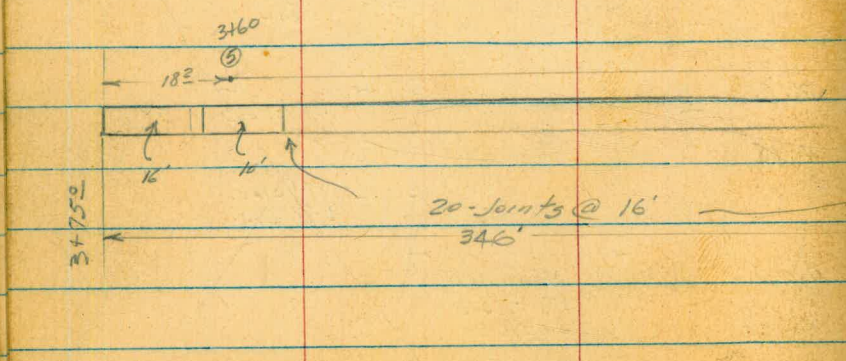 3+60
⑤
18²
16' 10'
20-Joints @ 16'
346'
3+75⁰